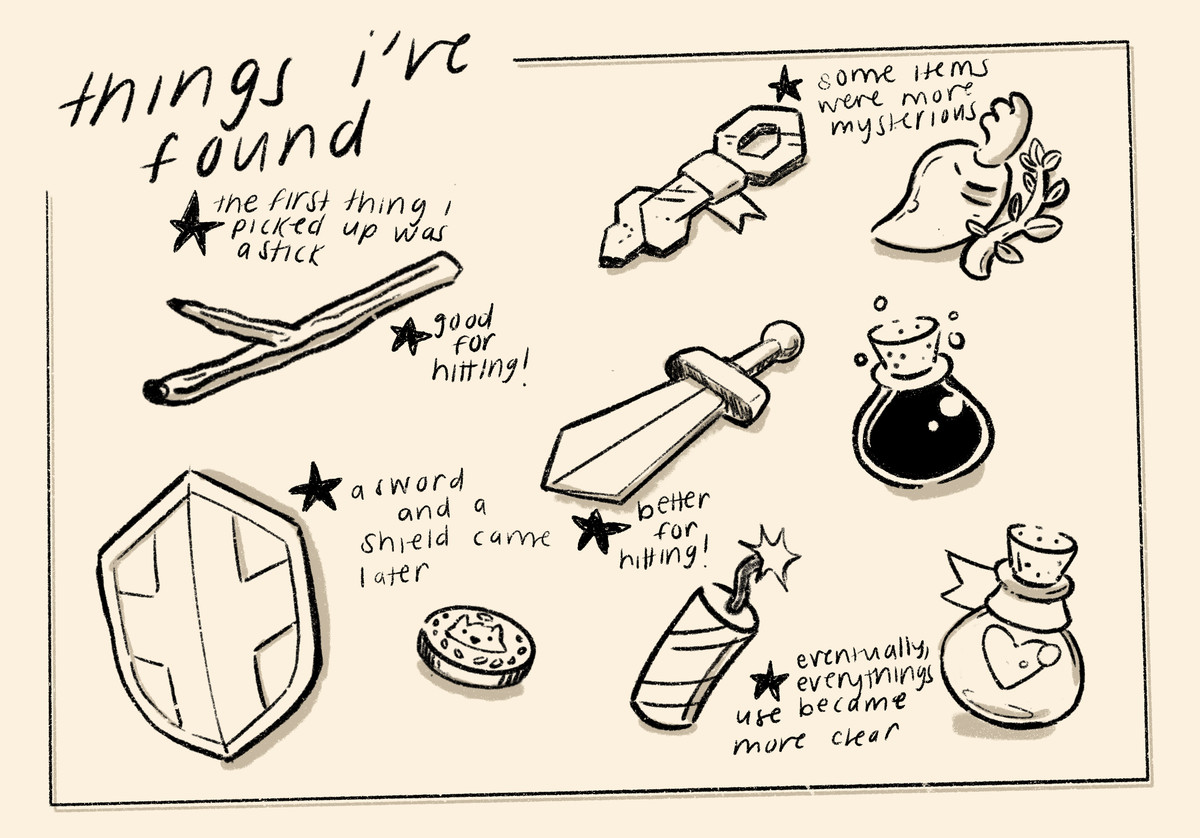 things i've
found
the first thing i
picked up was
a stick
good
for
hitting!
some items
were more
mysterious
a sword
and a
shield came
later
better
for
hitting!
eventually,
everythings
use became
more clear